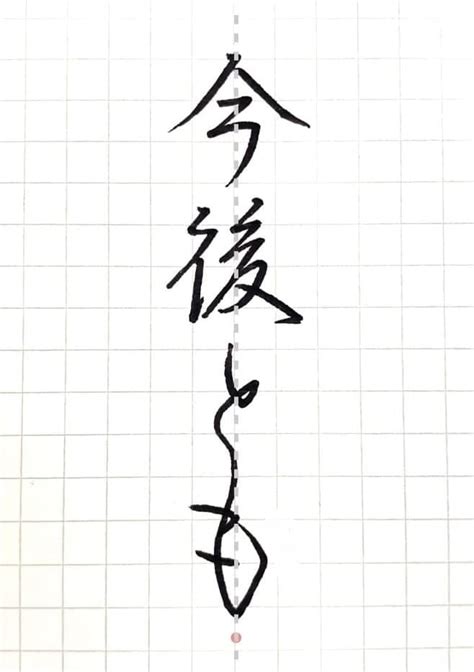 今後とも